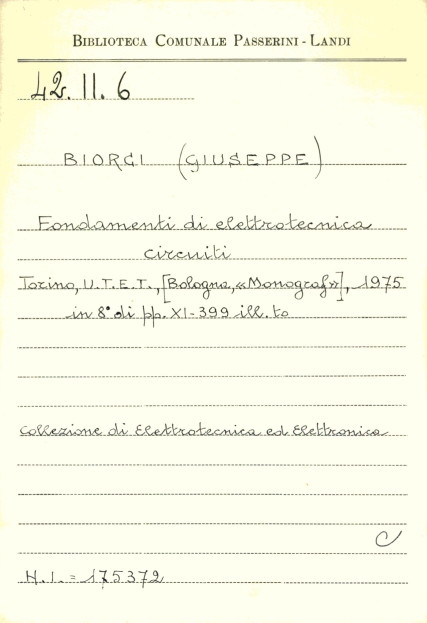 BIBLIOTECA COMUNALE PASSERINI - LANDI
42. II. 6
BIORCI (GIUSEPPE)
Fondamenti di elettrotecnica
circuiti
Torino, U.T.E.T., [Bologna, «Monograf»], 1975
in 8° di pp. XI-399 ill. to
Collezione di Elettrotecnica ed Elettronica
C
N.I. = 175372